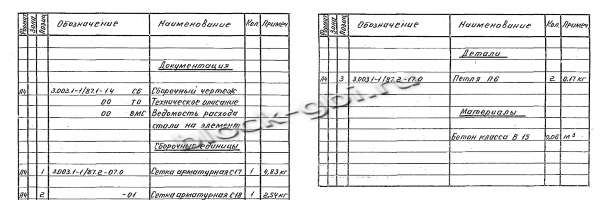 Формат Зона Позиц. Обозначение Наименование Кол. Примеч.
Документация
А4 3.003.1-1/87.1-14 СБ Сборочный чертеж
00 ТО Техническое описание
00 ВМС Ведомость расхода
стали на элемент
Сборочные единицы
А4 1 3.003.1-1/87.2-07.0 Сетка арматурная С17 1 4,83 кг
А4 2 -01 Сетка арматурная С18 1 2,54 кг
Формат Зона Позиц. Обозначение Наименование Кол. Примеч.
Детали
А4 3 3.003.1-1/87.2-17.0 Петля П6 2 0,17 кг
Материалы
Бетон класса В 15 0,06 м³
block-gbi.ru